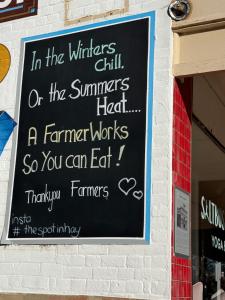 In the Winters
Chill.
Or the Summers
Heat.....
A Farmer Works
So You can Eat!
Thankyou Farmers
insta
# thespotinhay
YOGA